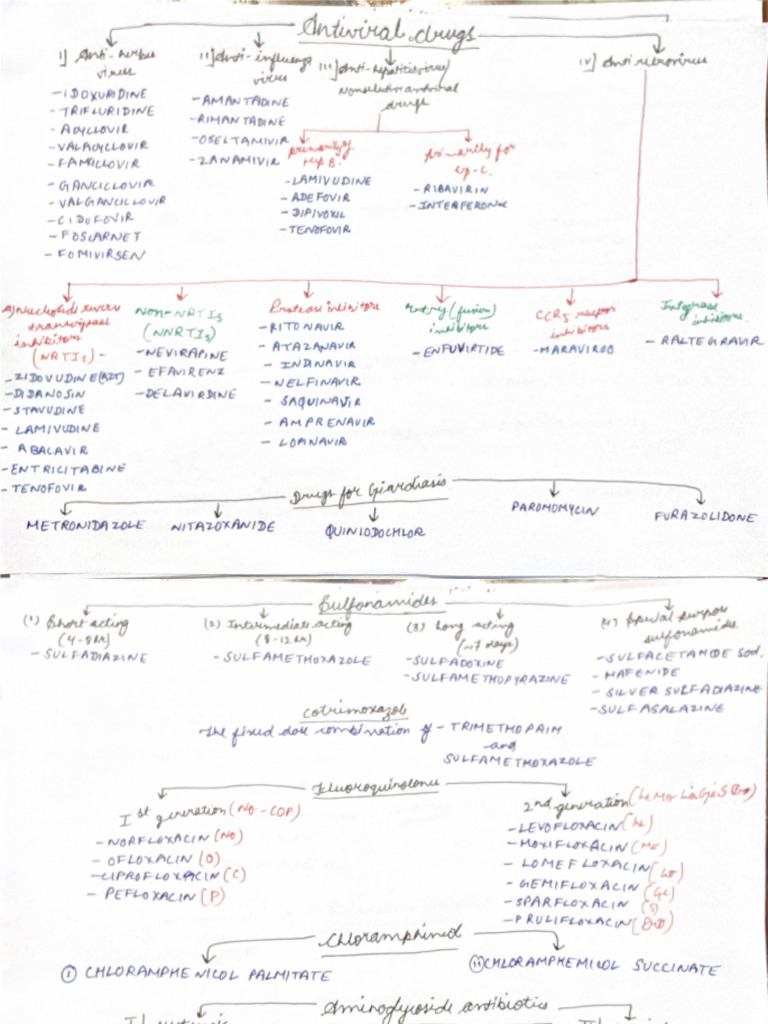 Antiviral drugs
I] Anti-herpes
virus
- IDOXURIDINE
- TRIFLURIDINE
- ACYCLOVIR
- VALACYCLOVIR
- FAMCICLOVIR
- GANCICLOVIR
- VALGANCICLOVIR
- CIDOFOVIR
- FOSCARNET
- FOMIVIRSEN
II] Anti-influenza
virus
- AMANTADINE
- RIMANTADINE
- OSELTAMIVIR
- ZANAMIVIR
III] Anti-hepatitis virus/
Nonselective antiviral
drugs
Primarily for
Hep B.
- LAMIVUDINE
- ADEFOVIR
- DIPIVOXIL
- TENOFOVIR
Primarily for
Hep-C.
- RIBAVIRIN
- INTERFERONS
IV] Anti retrovirus
A) Nucleoside reverse
transcriptase
inhibitors
(NRTIs) -
- ZIDOVUDINE (AZT)
- DIDANOSIN
- STAVUDINE
- LAMIVUDINE
- ABACAVIR
- EMTRICITABINE
- TENOFOVIR
Non-NRTIs
(NNRTIs)
- NEVIRAPINE
- EFAVIRENZ
- DELAVIRDINE
Protease inhibitors
- RITONAVIR
- ATAZANAVIR
- INDINAVIR
- NELFINAVIR
- SAQUINAVIR
- AMPRENAVIR
- LOPINAVIR
Entry (fusion)
inhibitors
- ENFUVIRTIDE
CCR5 receptor
inhibitors
- MARAVIROC
Integrase
inhibitors.
- RALTEGRAVIR
Drugs for Giardiasis
METRONIDAZOLE
NITAZOXANIDE
QUINIODOCHLOR
PAROMOMYCIN
FURAZOLIDONE
Sulfonamides
(1) Short acting
(4-8hr)
- SULFADIAZINE
(2) Intermediate acting
(8-12hr)
- SULFAMETHOXAZOLE
(3) Long acting
(~7 days)
- SULFADOXINE
- SULFAMETHOPYRAZINE
(4) Special purpose
sulfonamides
- SULFACETAMIDE SOD.
- MAFENIDE
- SILVER SULFADIAZINE
- SULFASALAZINE
Cotrimoxazole
The fixed dose combination of - TRIMETHOPRIM
and
SULFAMETHOXAZOLE
Fluoroquinolones
Ist generation (NO-COP)
- NORFLOXACIN (NO)
- OFLOXACIN (O)
- CIPROFLOXACIN (C)
- PEFLOXACIN (P)
2nd generation (Le Mo Lo Ge S Pro)
- LEVOFLOXACIN (Le)
- MOXIFLOXACIN (Mo)
- LOMEFLOXACIN (Lo)
- GEMIFLOXACIN (Ge)
- SPARFLOXACIN (S)
- PRULIFLOXACIN (Pro)
Chloramphenicol
(i) CHLORAMPHENICOL PALMITATE
(ii) CHLORAMPHEMICOL SUCCINATE
Aminoglycoside antibiotics